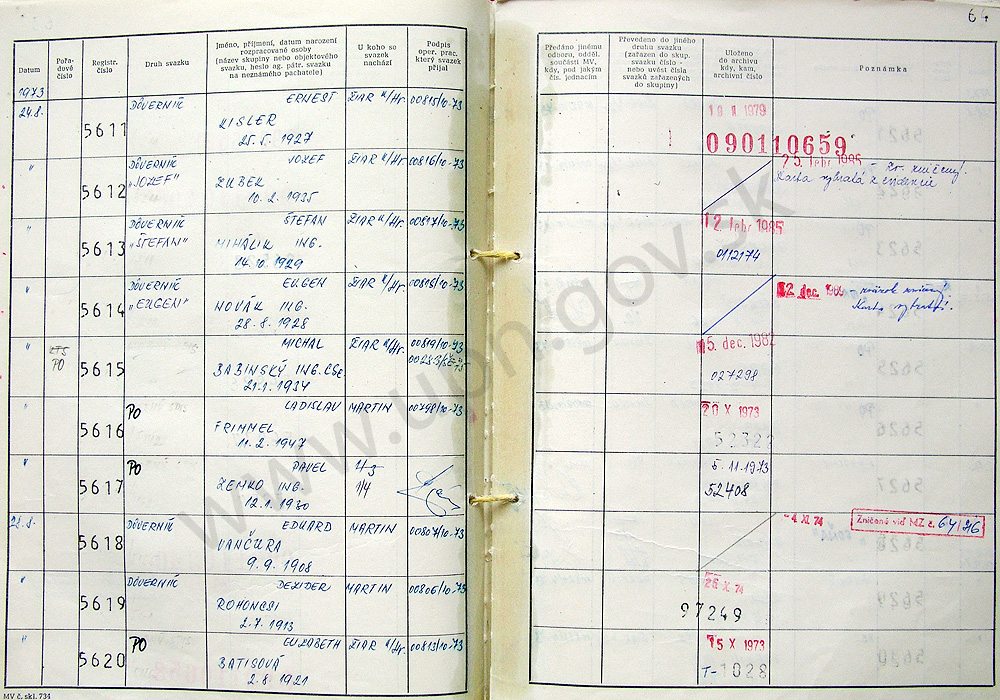 64
Datum
Pořadové číslo
Registr. číslo
Druh svazku
Jméno, příjmení, datum narození
rozpracované osoby
(název skupiny nebo objektového
svazku, heslo ag. pátr. svazku
na neznámého pachatele)
U koho se
svazek
nachází
Podpis
oper. prac.
který svazek
přijal
Předáno jinému
odboru, odděl.
součásti MV,
kdy, pod jakým
čís. jednacím
Převedeno do jiného
druhu svazku
(zařazen do skup.
svazku číslo -
nebo uvést čísla
svazků zařazených
do skupiny)
Uloženo
do archivu
kdy, kam,
archivní číslo
Poznámka
1973
24.8. 5611 DÔVERNÍK ERNEST ŽIAR n/Hr. 00815/10-73 19 II 1979
KISLER 090110659
25. 5. 1927
" 5612 DÔVERNÍK JOZEF ŽIAR n/Hr. 00816/10-73 25. febr. 1985 - zv. zničený!
"JOZEF" ZUBEK Karta vybratá z evidencie
10. 2. 1935
" 5613 DÔVERNÍK ŠTEFAN ŽIAR n/Hr. 00817/10-73 12. febr. 1985
"ŠTEFAN" MIHÁLIK ING. 0112174
14. 10. 1929
" 5614 DÔVERNÍK EUGEN ŽIAR n/Hr. 00818/10-73 dec. - zväzok zničený!
"EUGEN" NOVÁK ING. Karta vybratá!
28. 8. 1928
" PO 5615 MICHAL ŽIAR n/Hr. 00819/10-73 5. dec. 1982
BABINSKÝ ING. CSc. 027298
21. 1. 1934
" 5616 PO LADISLAV MARTIN 00798/10-73 20 X 1973
FRIMMEL 52322
11. 2. 1947
" 5617 PO PAVEL 5. 11. 1973
ZEMKO ING. 1/4 52408
12. 1. 1930
28.8. 5618 DÔVERNÍK EDUARD MARTIN 00807/10-73 -4 XI 74 Zničené viď MZ č. 64/36
VANČURA
9. 9. 1908
" 5619 DÔVERNÍK DEZIDER MARTIN 00806/10-73 26 X 74
ROHONCSI 97249
2. 7. 1913
" 5620 PO ELIZABETH ŽIAR n/Hr. 00813/10-73 15 X 1973
BATISOVÁ T-1028
2. 8. 1921
MV č. skl. 734
www.upn.gov.sk